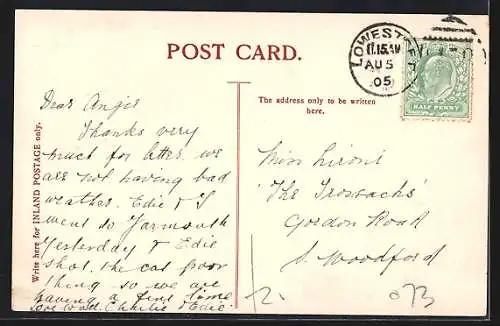 POST CARD.
LOWESTOFT
11.15AM
AU 5
05
HALF PENNY
The address only to be written
here.
Write here for INLAND POSTAGE only.
Dear Angie
Thanks very
much for letter. we
are not having bad
weather. Edie & I
went to Yarmouth
Yesterday & Edie
shot the cat poor
thing so we are
having a fine time
love to all. Charlie & Edie
Miss
"The Trossachs"
Gordon Road
S. Woodford
2.
073